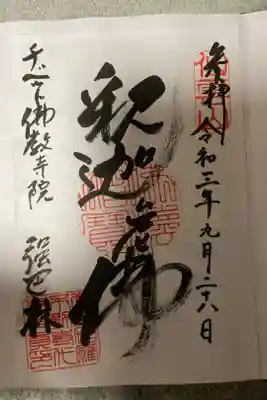 参拝 令和三年九月二十八日
釈迦牟尼佛
チベット佛教寺院 強巴林